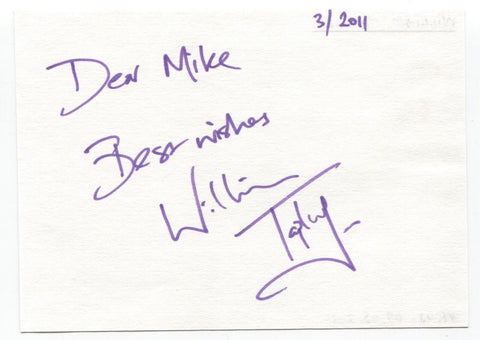 3/2011
Dear Mike
Best wishes
William